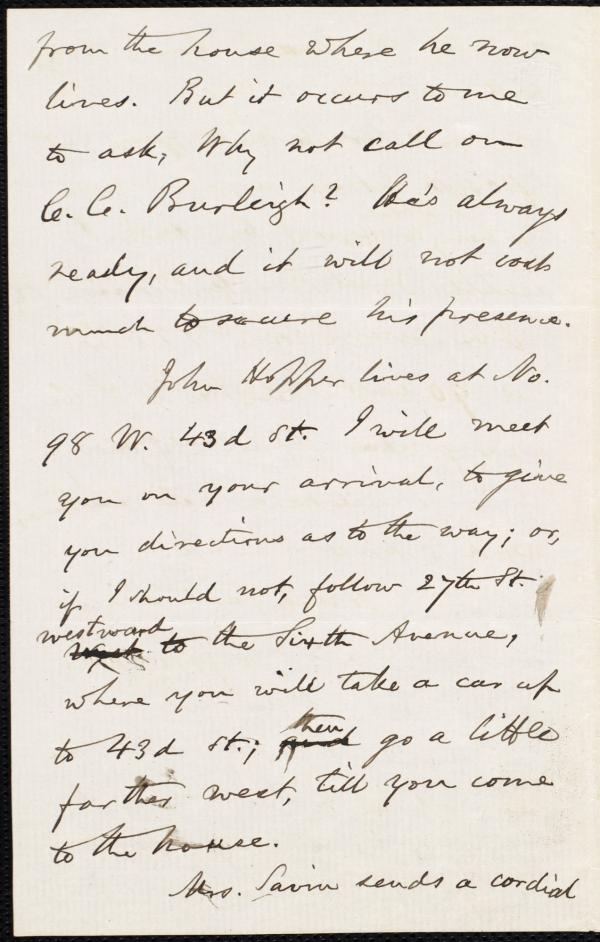 from the house where he now
lives. But it occurs to me
to ask, Why not call on
C. C. Burleigh? He's always
ready, and it will not cost
much to secure his presence.
John Hopper lives at No.
98 W. 43d St. I will meet
you on your arrival, to give
you directions as to the way; or,
if I should not, follow 27th St.
westward
west to the Sixth Avenue,
where you will take a car up
then
to 43d St.; and go a little
farther west, till you come
to the house.
Mrs. Savin sends a cordial